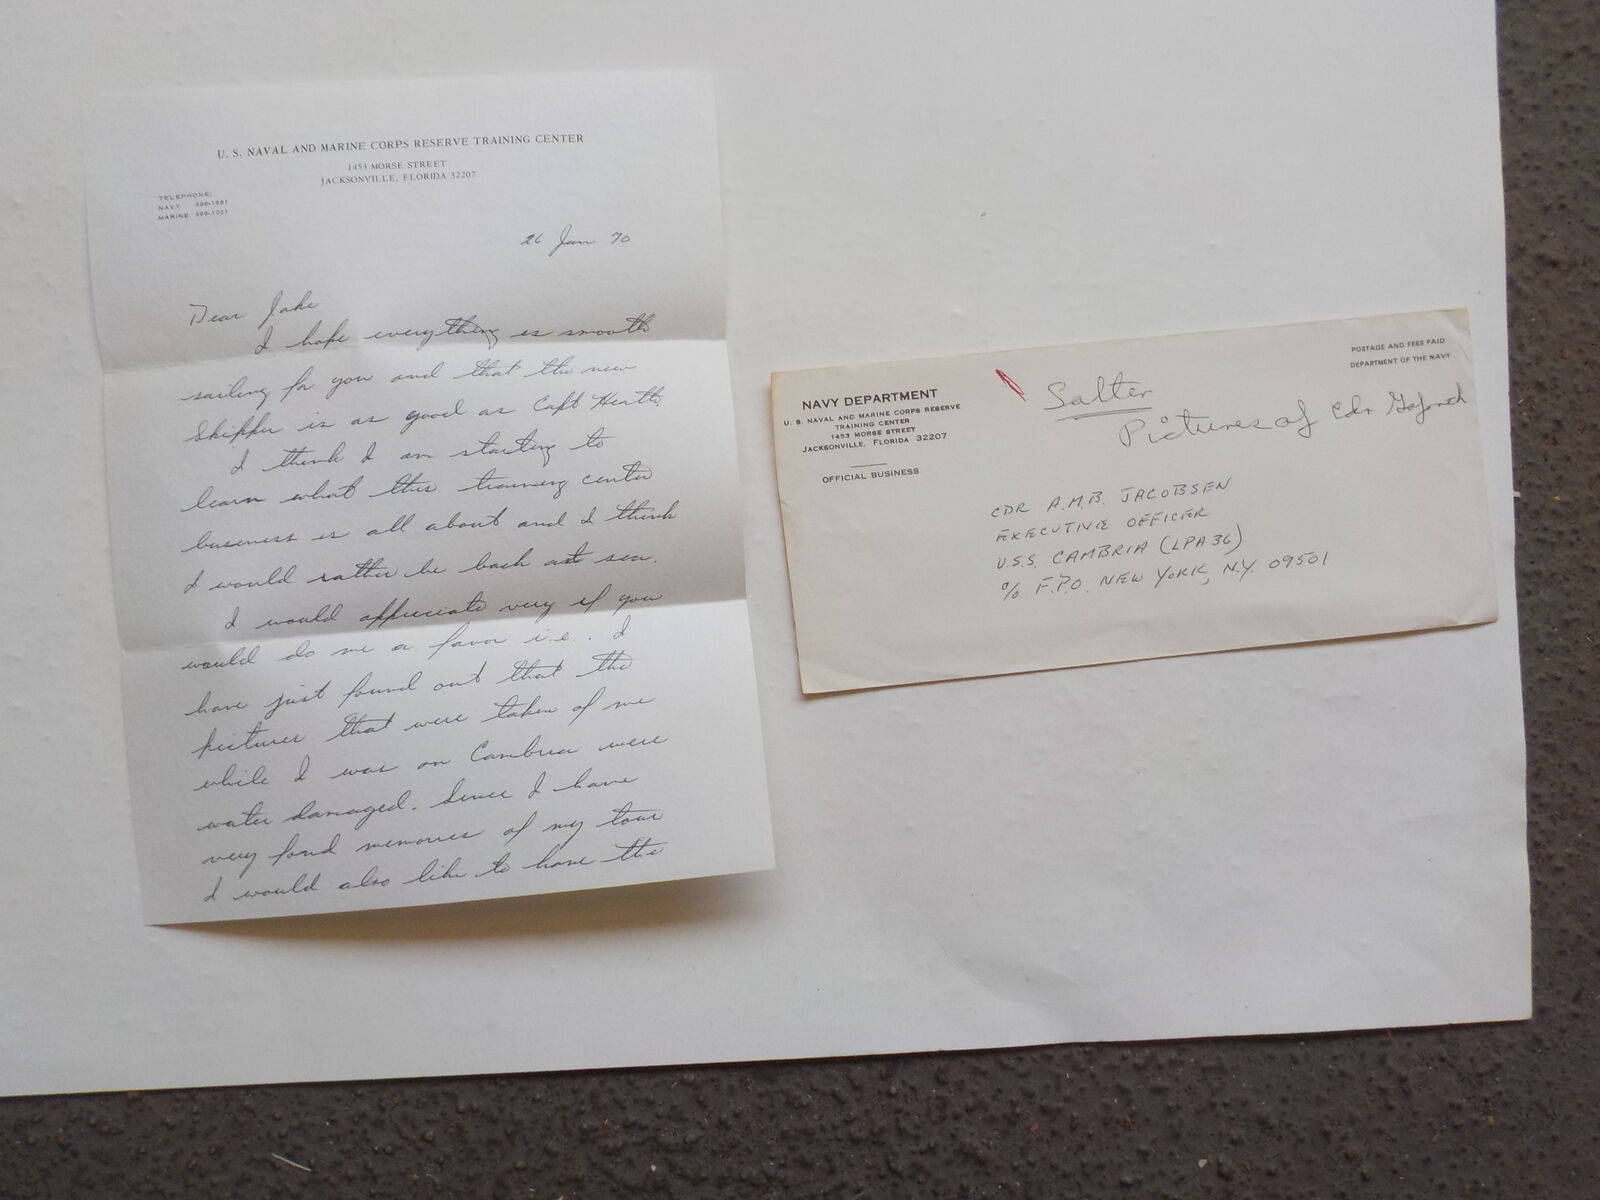 U. S. NAVAL AND MARINE CORPS RESERVE TRAINING CENTER
1453 MORSE STREET
JACKSONVILLE, FLORIDA 32207
TELEPHONE:
NAVY
MARINE 398-1021
26 Jan 70
Dear Jake
I hope everything is smooth
sailing for you and that the new
Skipper is as good as Capt Heath.
I think I am starting to
learn what this training center
business is all about and I think
I would rather be back at sea.
I would appreciate very if you
would do me a favor i.e.. I
have just found out that the
pictures that were taken of me
while I was on Cambria were
water damaged. Since I have
very fond memories of my tour
I would also like to have the
NAVY DEPARTMENT
U. S. NAVAL AND MARINE CORPS RESERVE
TRAINING CENTER
1453 MORSE STREET
JACKSONVILLE, FLORIDA 32207
OFFICIAL BUSINESS
POSTAGE AND FEES PAID
DEPARTMENT OF THE NAVY
Salter
Pictures of Cdr
CDR A.M.B. JACOBSEN
EXECUTIVE OFFICER
U.S.S. CAMBRIA (LPA 36)
c/o F.P.O. NEW YORK, N.Y. 09501